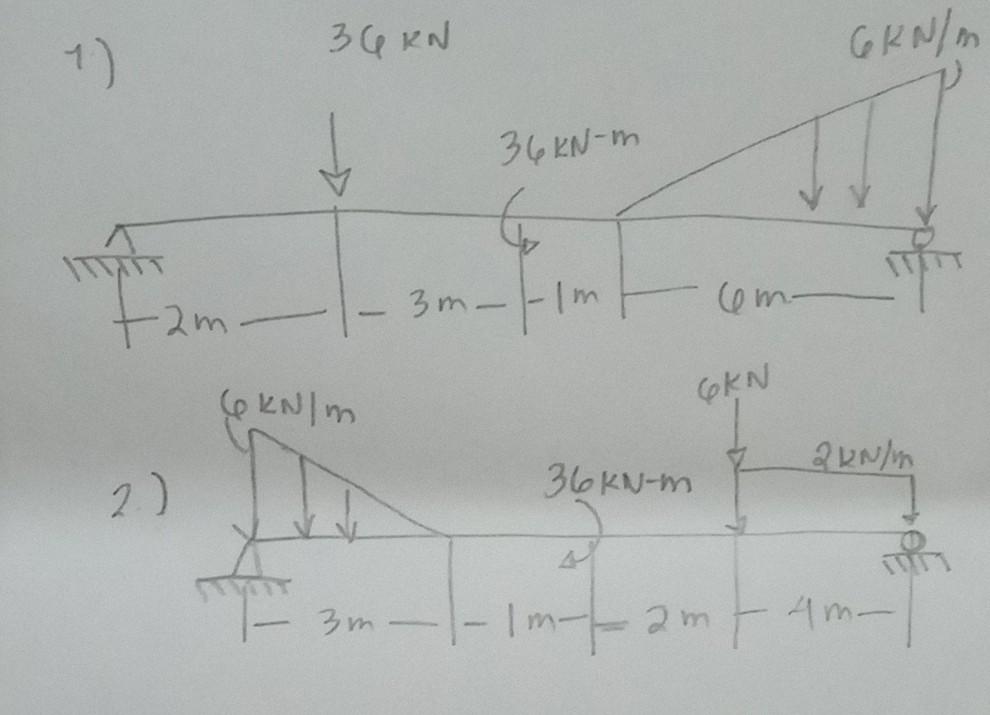 1)
36 KN
6 KN/m
36 KN-m
2m
3m
1m
6m
2.)
6 KN/m
36 KN-m
6KN
2KN/m
3m
1m
2m
4m